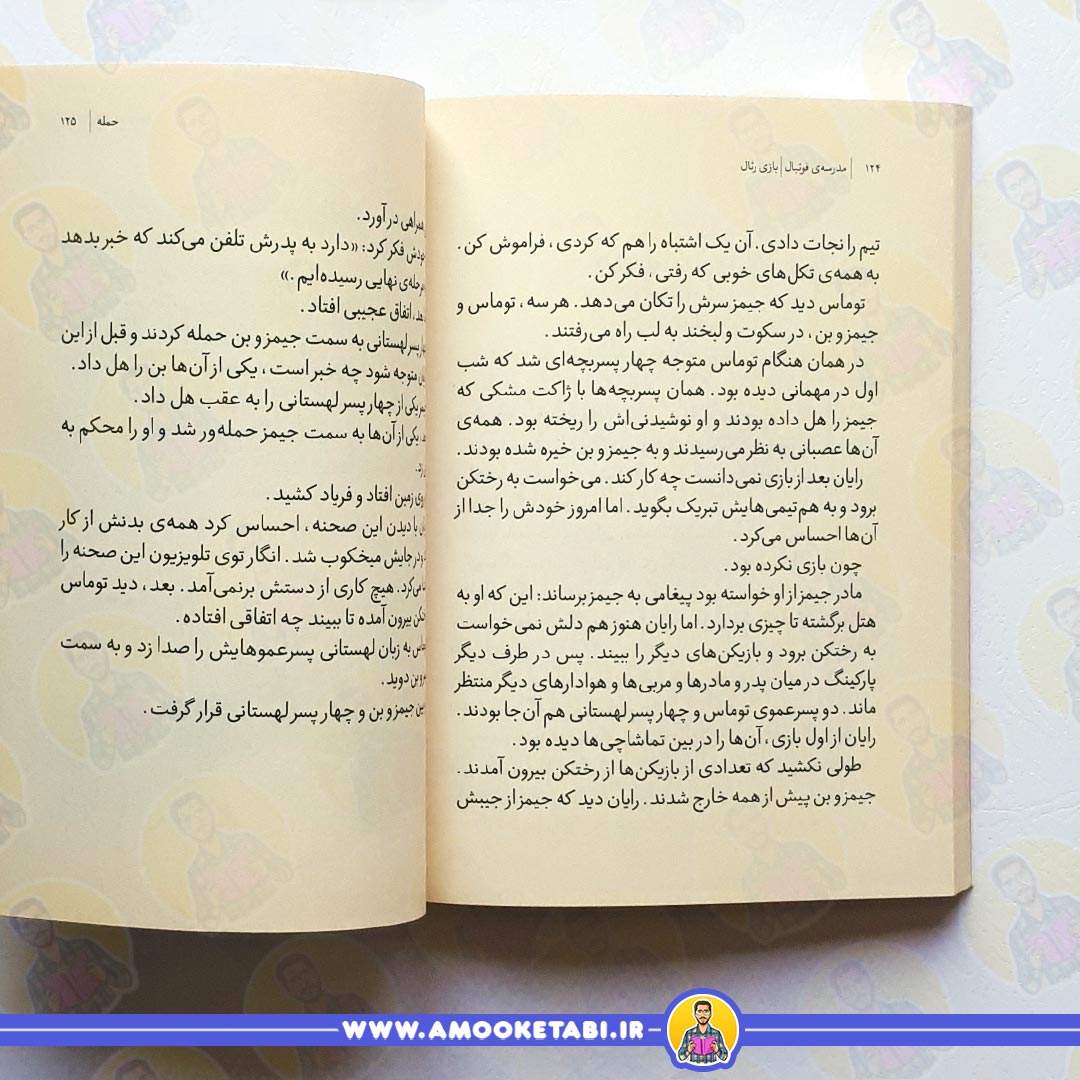 ۱۲۴ | مدرسه‌ی فوتبال | بازی رئال
تیم را نجات دادی. آن یک اشتباه را هم که کردی، فراموش کن.
به همه‌ی تکل‌های خوبی که رفتی، فکر کن.
توماس دید که جیمز سرش را تکان می‌دهد. هر سه، توماس و
جیمز و بن، در سکوت و لبخند به لب راه می‌رفتند.
در همان هنگام توماس متوجه چهار پسربچه‌ای شد که شب
اول در مهمانی دیده بود. همان پسربچه‌ها با ژاکت مشکی که
جیمز را هل داده بودند و او نوشیدنی‌اش را ریخته بود. همه‌ی
آن‌ها عصبانی به نظر می‌رسیدند و به جیمز و بن خیره شده بودند.
رایان بعد از بازی نمی‌دانست چه کار کند. می‌خواست به رختکن
برود و به هم‌تیمی‌هایش تبریک بگوید. اما امروز خودش را جدا از
آن‌ها احساس می‌کرد.
چون بازی نکرده بود.
مادر جیمز از او خواسته بود پیغامی به جیمز برساند: این که او به
هتل برگشته تا چیزی بردارد. اما رایان هنوز هم دلش نمی‌خواست
به رختکن برود و بازیکن‌های دیگر را ببیند. پس در طرف دیگر
پارکینگ در میان پدر و مادرها و مربی‌ها و هوادارهای دیگر منتظر
ماند. دو پسرعموی توماس و چهار پسر لهستانی هم آن‌جا بودند.
رایان از اول بازی، آن‌ها را در بین تماشاچی‌ها دیده بود.
طولی نکشید که تعدادی از بازیکن‌ها از رختکن بیرون آمدند.
جیمز و بن پیش از همه خارج شدند. رایان دید که جیمز از جیبش
حمله | ۱۲۵
درآورد.
فکر کرد: «دارد به پدرش تلفن می‌کند که خبر بدهد
نهایی رسیده‌ایم.»
اتفاق عجیبی افتاد.
پسر لهستانی به سمت جیمز و بن حمله کردند و قبل از این
متوجه شود چه خبر است، یکی از آن‌ها بن را هل داد.
یکی از چهار پسر لهستانی را به عقب هل داد.
یکی از آن‌ها به سمت جیمز حمله‌ور شد و او را محکم به
زمین افتاد و فریاد کشید.
با دیدن این صحنه، احساس کرد همه‌ی بدنش از کار
در جایش میخکوب شد. انگار توی تلویزیون این صحنه را
می‌کرد. هیچ کاری از دستش برنمی‌آمد. بعد، دید توماس
بیرون آمده تا ببیند چه اتفاقی افتاده.
به زبان لهستانی پسرعموهایش را صدا زد و به سمت
دوید.
جیمز و بن و چهار پسر لهستانی قرار گرفت.
WWW.AMOOKETABI.IR